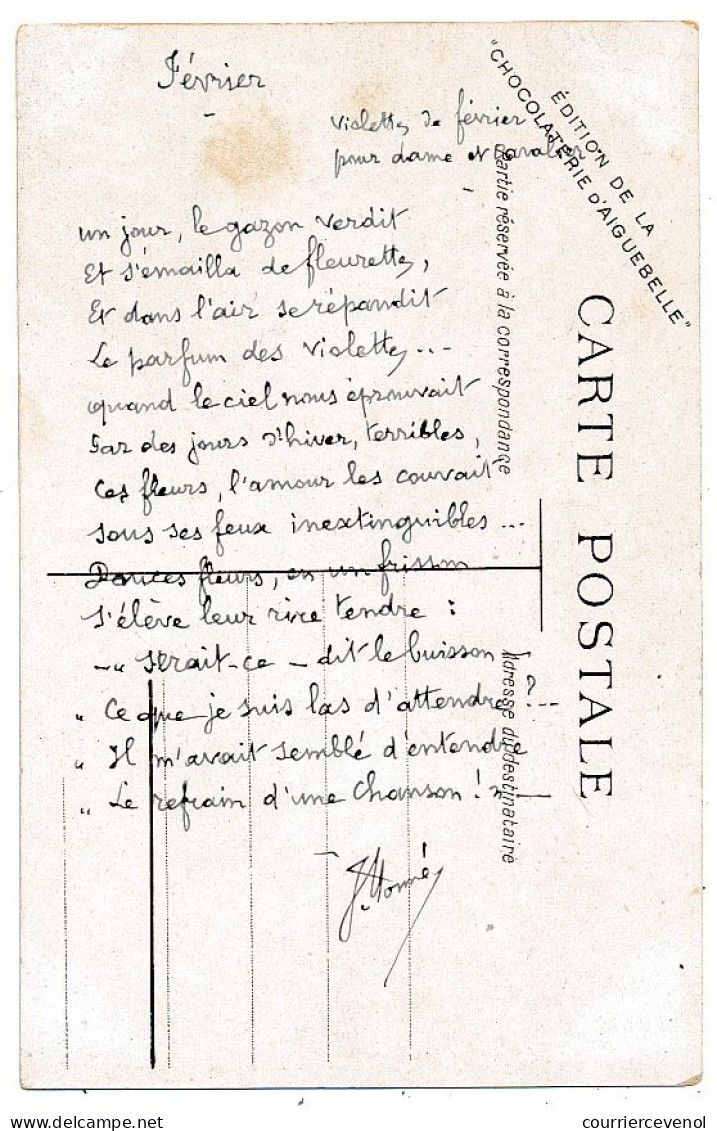 Février
Violettes de février
pour dame et cavalier
un jour, le gazon verdit
Et s'émailla de fleurettes,
Et dans l'air se répandit
Le parfum des violettes...
quand le ciel nous éprouvait
Par des jours d'hiver, terribles,
Ces fleurs, l'amour les couvait
sous ses feux inextinguibles...
Douces fleurs, en un frisson
s'élève leur rire tendre :
-" serait-ce - dit le buisson -
" Ce que je suis las d'attendre ?...
" Il m'avait semblé d'entendre
" Le refrain d'une chanson ! "
ÉDITION DE LA
"CHOCOLATERIE D'AIGUEBELLE"
CARTE POSTALE
Partie réservée à la correspondance
Adresse du destinataire
courriercevenol